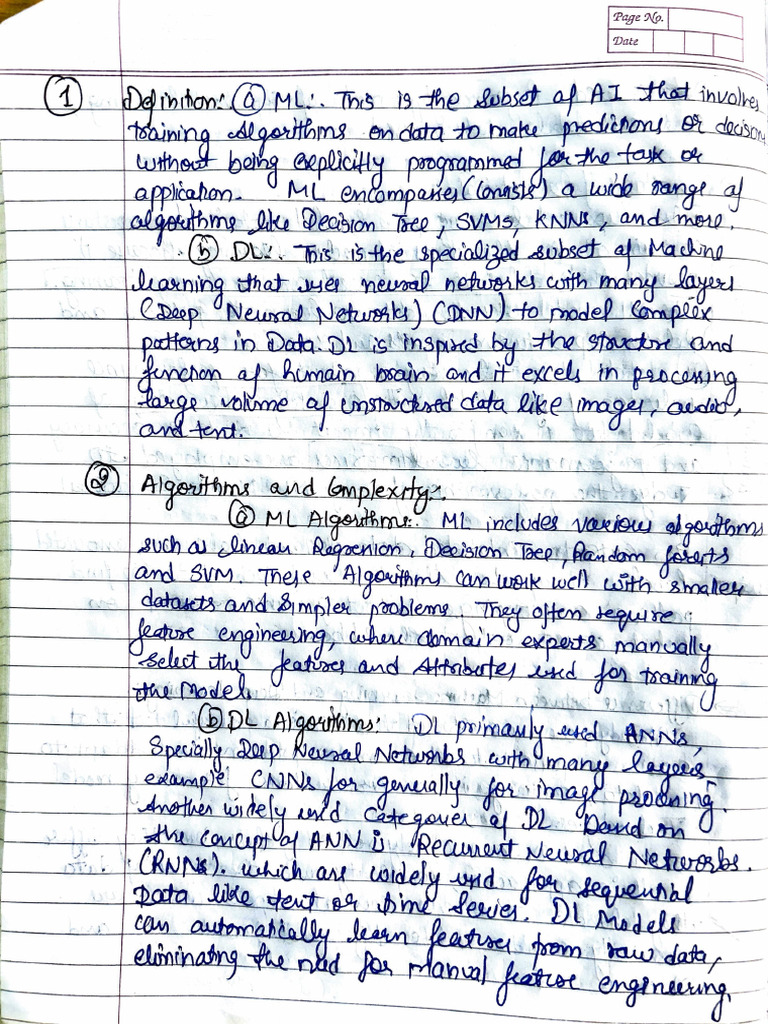 Page No.
Date
1 Definition: (a) ML:. This is the subset of AI that involves
training algorithms on data to make predictions or decision
without being explicitly programmed for the task or
application. ML encompasses (consists) a wide range of
algorithms like Decision Tree, SVMs, KNNs, and more.
(b) DL:. This is the specialized subset of Machine
learning that uses neural networks with many layers
(Deep Neural Networks) (DNN) to model complex
patterns in Data. DL is inspired by the structure and
function of human brain and it excels in processing
large volume of unstructured data like images, audio,
and text.
2 Algorithms and Complexity:.
(a) ML Algorithms:. ML includes various algorithms
such as linear Regression, Decision Tree, Random forests
and SVM. These Algorithms can work well with smaller
datasets and simpler problems. They often require
feature engineering, where domain experts manually
select the features and Attributes used for training
the Model.
(b) DL Algorithms: DL primarily used ANNs,
Specially Deep Neural Networks with many layers,
example CNNs for generally for image processing.
Another widely used categories of DL based on
the concept of ANN is Recurrent Neural Networks.
(RNNs). which are widely used for sequential
Data like text or time series. DL Models
can automatically learn features from raw data,
eliminating the need for Manual feature engineering.